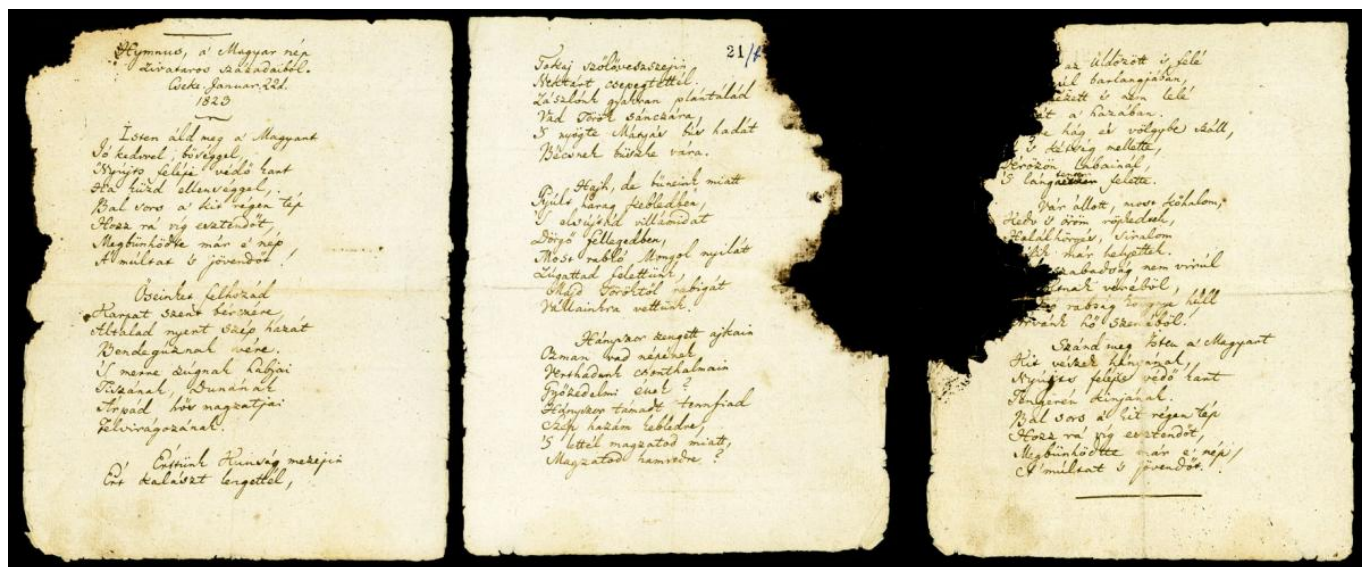 Hymnus, a' Magyar nép
zivataros századaiból.
Cseke. Januar. 22d.
1823
Isten áld meg a' Magyart
Jó kedvvel, bőséggel,
Nyújts feléje védő kart
Ha küzd ellenséggel,
Bal sors a' kit régen tép
Hozz rá víg esztendőt,
Megbűnhödte már e' nép
A' múltat 's jövendőt!
Őseinket felhozád
Kárpát szent bérczére,
Általad nyert szép hazát
Bendegúznak vére.
'S merre zúgnak habjai
Tiszának, Dunának
Árpád hős magzatjai
Felvirágozának.
Értünk Kunság mezején
Ért kalászt lengettél,
21/
Tokaj szőlővesszejin
Nektárt csepegtettél.
Zászlónk gyakran plántálád
Vad Török sánczára,
'S nyögte Mátyás bús hadát
Bécsnek büszke vára.
Hajh, de bűneink miatt
Gyúlt harag kebledben,
'S elsújtád villámidat
Dörgő fellegedben,
Most rabló Mongol nyilát
Zúgattad felettünk,
Majd Töröktől rabigát
Vállainkra vettünk.
Hányszor zengett ajkain
Ozman vad népének
Vert hadunk csonthalmain
Győzedelmi ének?
Hányszor támadt tennfiad
Szép hazám kebledre,
'S lettél magzatod miatt,
Magzatod hamvedre?
az üldözött 's felé
barlangjában,
's nem lelé
a' hazában.
hág és völgybe száll,
's kétség mellette,
Vérözön lábainál,
'S lángtenger felette.
Vár állott, most kőhalom,
Kedv 's öröm röpkedtek,
Halálhörgés, siralom
már helyettek.
szabadság nem virúl
véréből,
rabság könnye hull
hő szeméből!
Szánd meg Isten a' Magyart
Kit vészek hányának,
Nyújts feléje védő kart
Tengerén kínjának.
Bal sors a' kit régen tép
Hozz rá víg esztendőt,
Megbűnhödte már e' nép,
A' múltat 's jövendőt.